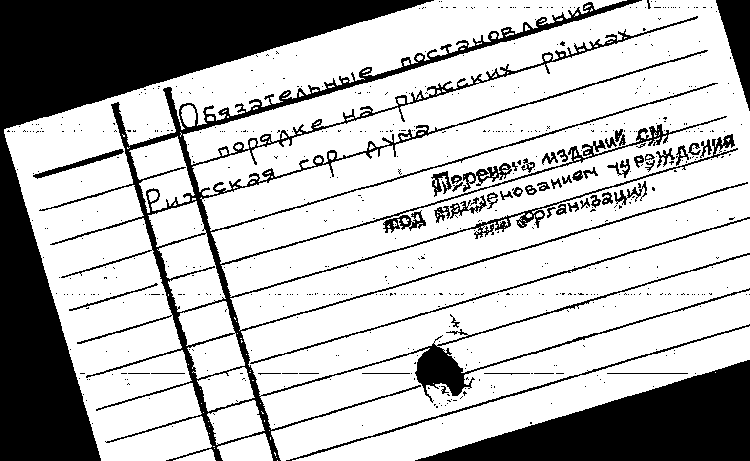 Обязательные постановления
порядке на рижских рынках.
Рижская гор. дума.
Перечень изданий см.
под наименованием учреждения
или организации.